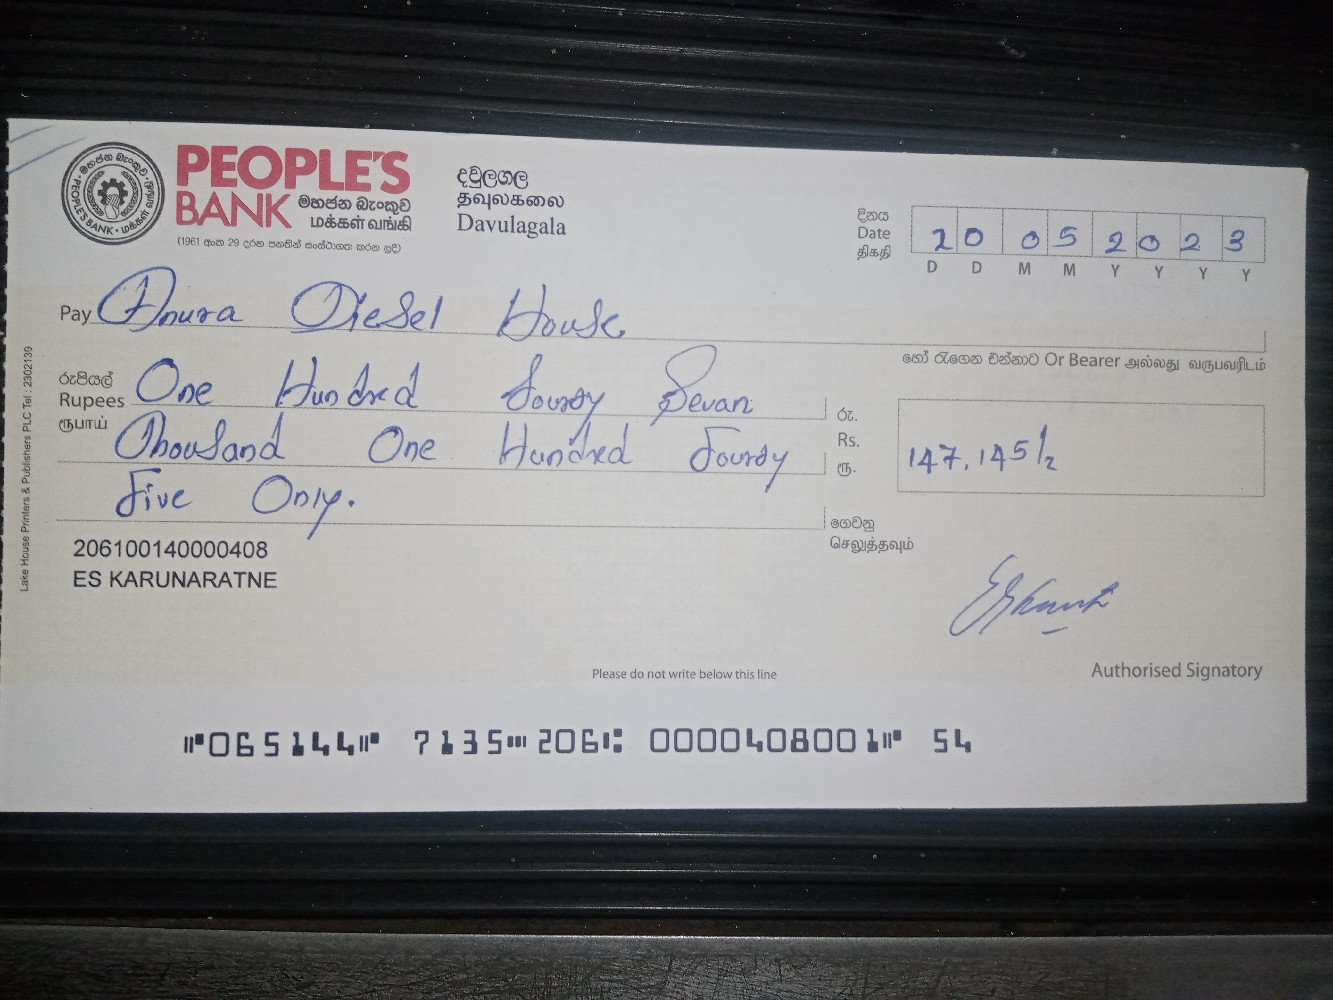 PEOPLE'S
BANK මහජන බැංකුව
மக்கள் வங்கி
(1961 අංක 29 දරන පනතින් සංස්ථාගත කරන ලදි)
දවුලගල
தவுலகலை
Davulagala
දිනය
Date
திகதி
20 05 2023
D D M M Y Y Y Y
Pay Anura Diesel House
හෝ රැගෙන එන්නාට Or Bearer அல்லது வருபவரிடம்
රුපියල්
Rupees
ரூபாய்
One Hundred Fourty Sevan
Thousand One Hundred Fourty
Five Only.
රු.
Rs.
ரூ.
147,145/=
ගෙවනු
செலுத்தவும்
206100140000408
ES KARUNARATNE
Please do not write below this line
Authorised Signatory
⑈065144⑈ 7135⑉206⑆ 0000408001⑈ 54
Lake House Printers & Publishers PLC Tel : 2302139